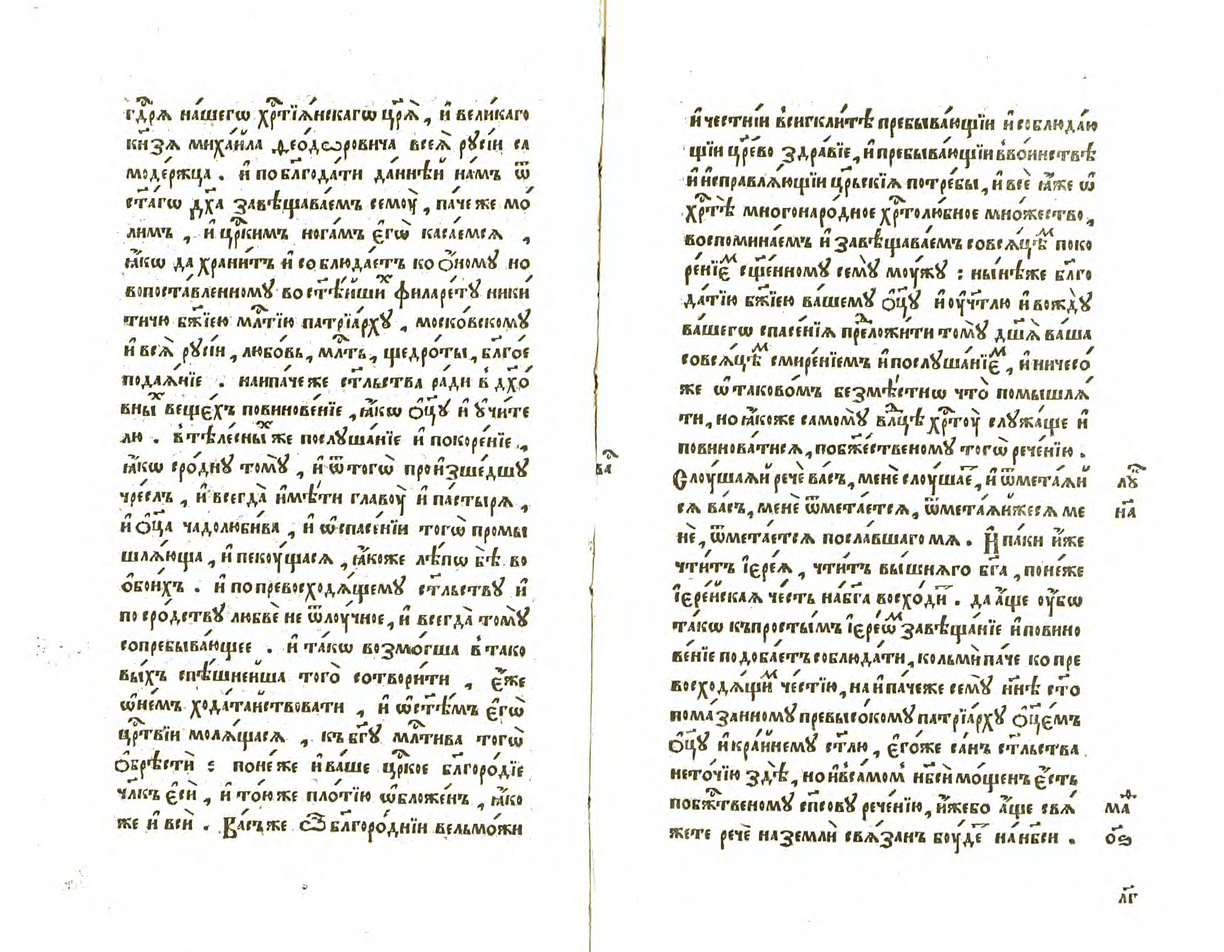 гдⷭ҇рѧ на́шегѡ хрⷭ҇тїѧ́нскагѡ црѧ̀, и҆ вели́каго
кн҃зѧ михаи́ла ѳео́дѡровича всеѧ̀ рѹсі́и са
моде́ржца . и҆ по блгⷣати да́ннѣй на́мъ ѿ
ст҃а́гѡ дх҃а завѣщава́емъ семоу̀, па́че же мо
лимъ , и҆ црⷭ҇кимъ нога́мъ є҆гѡ̀ каса́емсѧ ,
ꙗ҆́кѡ да храни́тъ и҆ соблюда́етъ ко ѻ҆́номꙋ но
вопоста́вленномꙋ во ст҃ѣ́йши́хъ филаре́тꙋ ники́
тичю бж҃їею млⷭ҇тїю патрїа́рхꙋ , моско́вскомꙋ
и҆ всеѧ̀ рѹсі́и , любо́вь , млⷭ҇ть , щедро́ты , бл҃го́е
подаѧ́нїе . наипа́че же ст҃льства ра́ди в̾ дх҃о́
вны́хъ ве́щєхъ повинове́нїе , ꙗ҆́кѡ ѻ҆ц҃ꙋ̀ и҆ ᲂу҆чи́те
лю . в̾ тѣле́сны́хъ же послꙋша́нїе и҆ покоре́нїе ,
ꙗ҆́кѡ сро́днꙋ томꙋ̀ , и҆ ѿ тогѡ̀ произше́дшꙋ
чре́слъ , и҆ всегда̀ и҆мѣ́ти главоу̀ и҆ па́стырѧ ,
и҆ ѻ҆ц҃а̀ чадолюби́ва , и҆ ѡ҆ спасе́нїи тогѡ̀ промы
шлѧ́юща , и҆ пекоу́щасѧ , ꙗ҆́коже лѣ́пѡ бѣ̀ во
ѻ҆бои́хъ . и҆ по превосходѧ́щемꙋ ст҃льствꙋ и҆
по сро́дствꙋ любвѐ не ѿлоу́чное , и҆ всегда̀ томꙋ̀
сопребыва́ющее . и҆ та́кѡ возмо́гша в̾ тако
вы́хъ спѣ́шнейша того̀ сотвори́ти , є҆́же
ѡ҆ не́мъ хода́таиствовати , и҆ ѡ҆ ст҃ѣ́мъ є҆гѡ̀
црⷭ҇твїи молѧ́щасѧ , къ бг҃ꙋ млⷭ҇тива тогѡ̀
ѻ҆брѣстѝ : поне́же и҆ ва́ше црⷭ҇кое бл҃горо́дїе
чл҃къ є҆сѝ , и҆ то́юже пло́тїю ѡ҆бложе́нъ , ꙗ҆́ко
же и҆ всѝ . Ва́съже ѽ бл҃горо́днїи вельмо́жи
и҆ че́стнїи в̾си́гклитѣ пребыва́ющїи и҆ соблюда́ю
щїи цр҃е́во здра́вїе , и҆ пребыва́ющїи в̾во́инствѣ
и҆ и҆справлѧ́ющїи цр҃ьскїѧ потре́бы , и҆ всѐ ꙗ҆́же ѡ҆
хрⷭ҇тѣ̀ многонаро́дное хрⷭ҇толю́бное мно́жество ,
воспомина́емъ и҆ завѣщава́емъ совсѧ́цѣмъ поко
ре́нїємъ сщ҃е́нномꙋ семꙋ̀ моу́жꙋ : ны́нѣже бл҃го
да́тїю бж҃їею ва́шемꙋ ѻ҆ц҃ꙋ̀ и҆ ᲂу҆чт҃лю и҆ вождꙋ̀
ва́шегѡ спасе́нїѧ преⷣложи́ти томꙋ̀ дш҃ѧ̀ ва́ша
совсѧ́цѣмъ смире́нїемъ и҆ послꙋша́нїємъ , и҆ ничесо́
же ѡ҆ таково́мъ безмѣ́стнѡ что̀ помышлѧ́
ти , но ꙗ҆́коже самомꙋ̀ влⷣцѣ хрⷭ҇тоу̀ слꙋжа́ще и҆
повинова́тисѧ , побж҃е́ственомꙋ тогѡ̀ рече́нїю .
Слоу́шаѧи речѐ ва́съ , менѐ слоу́шаетъ , и҆ ѿмета́ѧй
сѧ ва́съ , менѐ ѿмета́етсѧ , ѿмета́ѧйжесѧ ме
нѐ , ѿмета́етсѧ посла́вшаго мѧ . И҆ па́ки и҆́же
чти́тъ і҆ере́ѧ , чти́тъ вы́шнѧго бг҃а , поне́же
і҆ере́йскаѧ че́сть на бг҃а восхо́дитъ . да а҆́ще ᲂу҆́бѡ
та́кѡ къ просты́мъ і҆ере́ѡмъ завѣща́нїе и҆ повино
ве́нїе подоба́етъ соблюда́ти , кольмѝ па́че ко пре
восходѧ́щимъ че́стїю , наипа́чеже семꙋ̀ нн҃ѣ ст҃о
пома́занномꙋ превысо́комꙋ патрїа́рхꙋ ѻ҆ц҃е́мъ
ѻ҆ц҃ꙋ̀ и҆ кра́йнемꙋ ст҃лю , є҆гѡ́же са́нъ ст҃льства
нето́чїю здѣ̀ , но и҆ в̾ само́мъ нб҃сѝ мо́щенъ є҆́сть
побжⷭ҇твеномꙋ сп҃сову рече́нїю , и҆́жебо а҆́ще свѧ́
жете речѐ на землѝ свѧ́занъ боу́детъ на нб҃сѝ .
ва
лꙋⷦ҇
на҃
маⷴ҇
о҃ѕ
лг҃